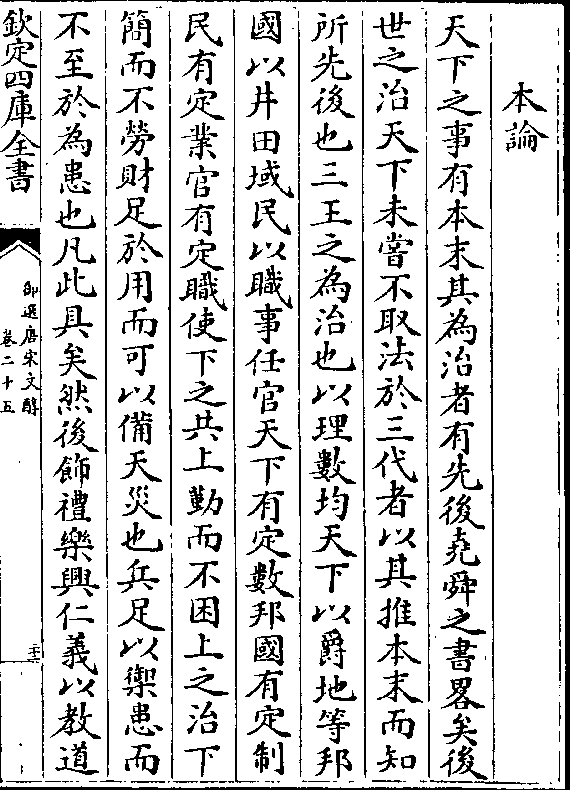 本論
天下之事有本末其為治者有先後堯舜之書畧矣後
世之治天下未嘗不取法於三代者以其推本末而知
所先後也三王之為治也以理數均天下以爵地等邦
國以井田域民以職事任官天下有定數邦國有定制
民有定業官有定職使下之共上勤而不困上之治下
簡而不勞財足於用而可以備天災也兵足以禦患而
不至於為患也凡此具矣然後飾禮樂興仁義以教道
欽定四庫全書
御選唐宋文醇
卷二十五